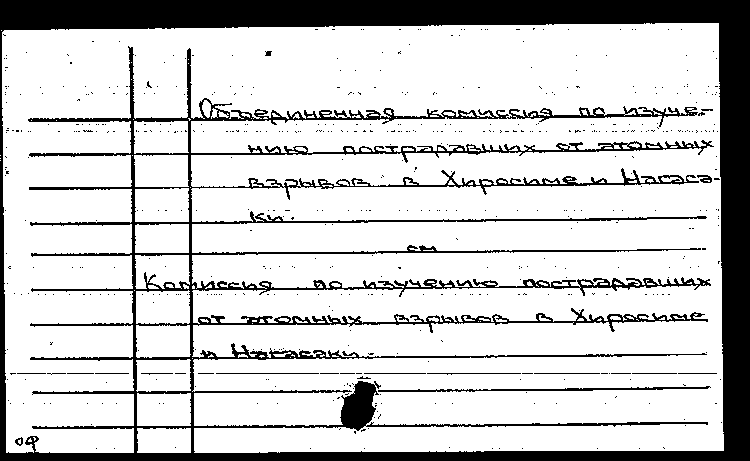 Объединенная комиссия по изуче-
нию пострадавших от атомных
взрывов в Хиросиме и Нагаса-
ки.
см
Комиссия по изучению пострадавших
от атомных взрывов в Хиросиме
и Нагасаки.
оф